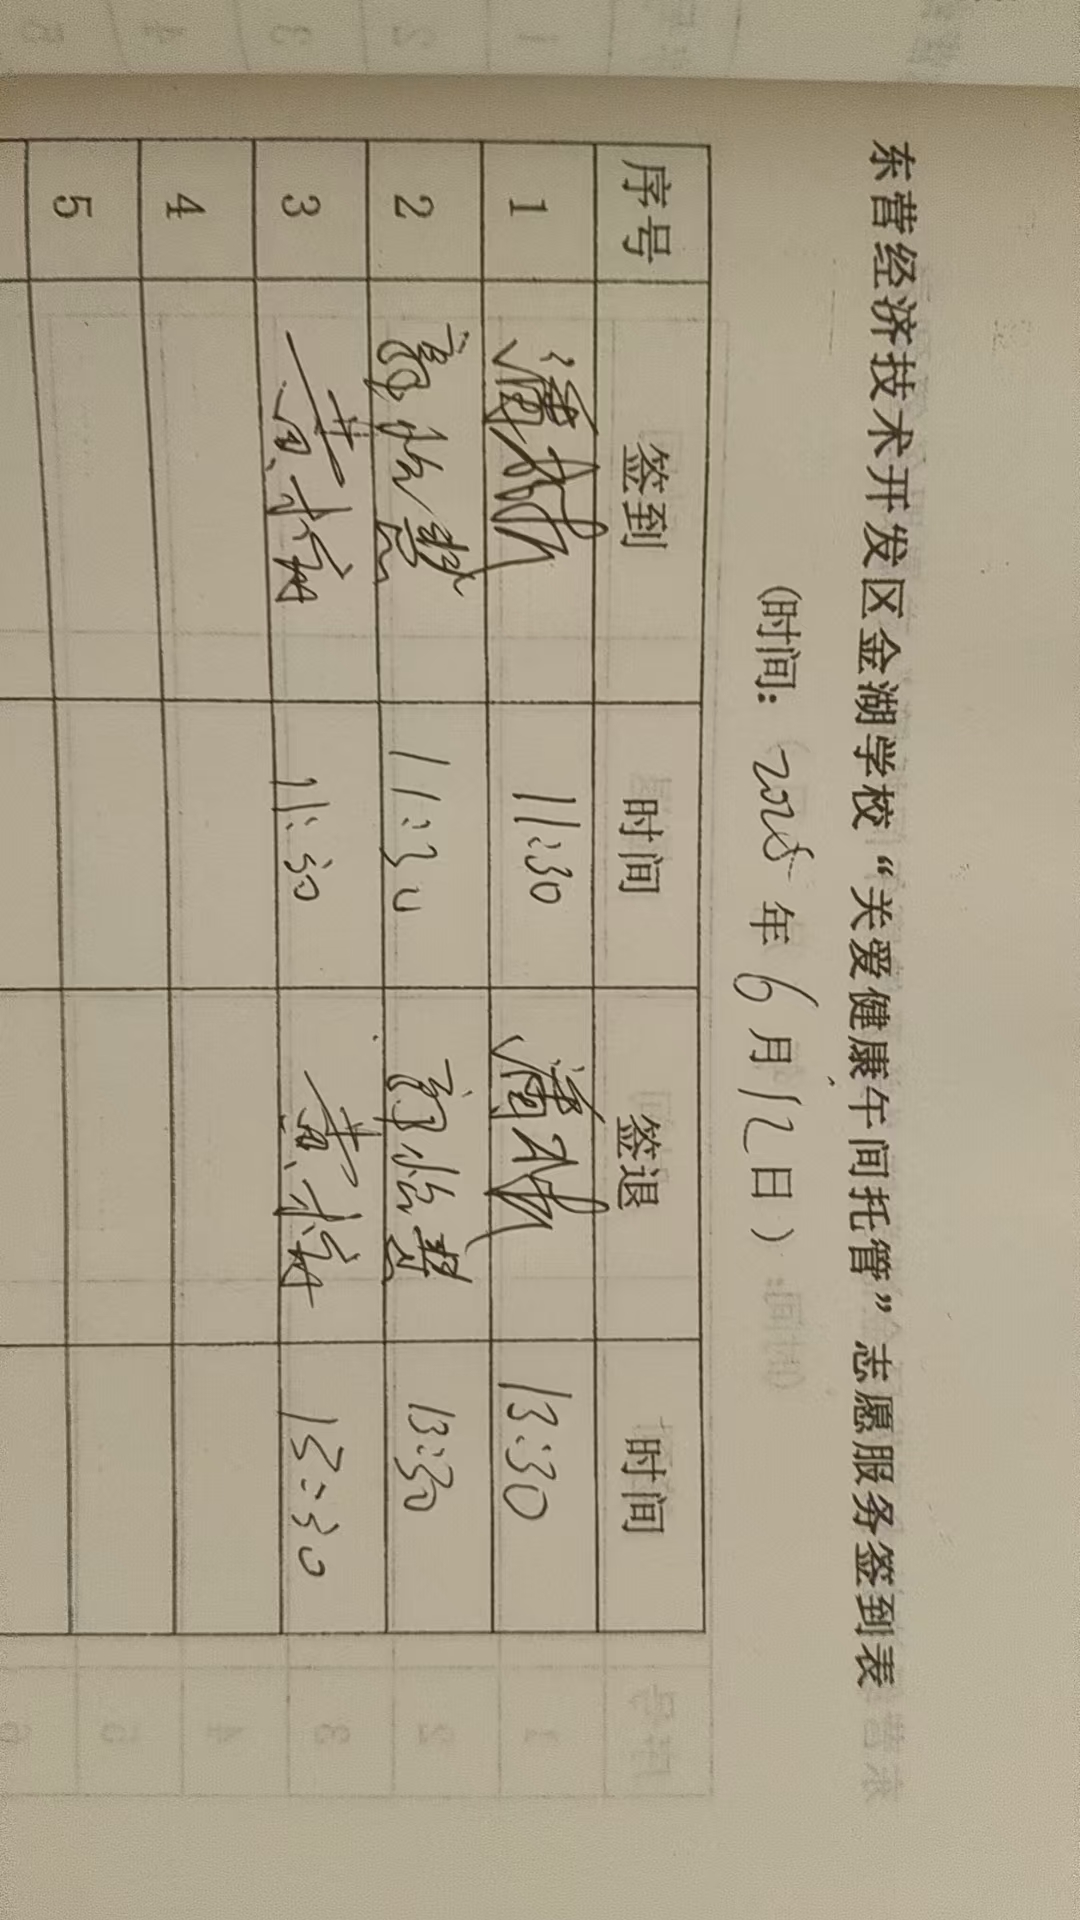 东营经济技术开发区金湖学校“关爱健康午间托管”志愿服务签到表
(时间: 2025年6月12日)
序号 签到 时间 签退 时间
1 11:30 13:30
2 11:30 13:30
3 黄 11:30 黄 13:30
4
5